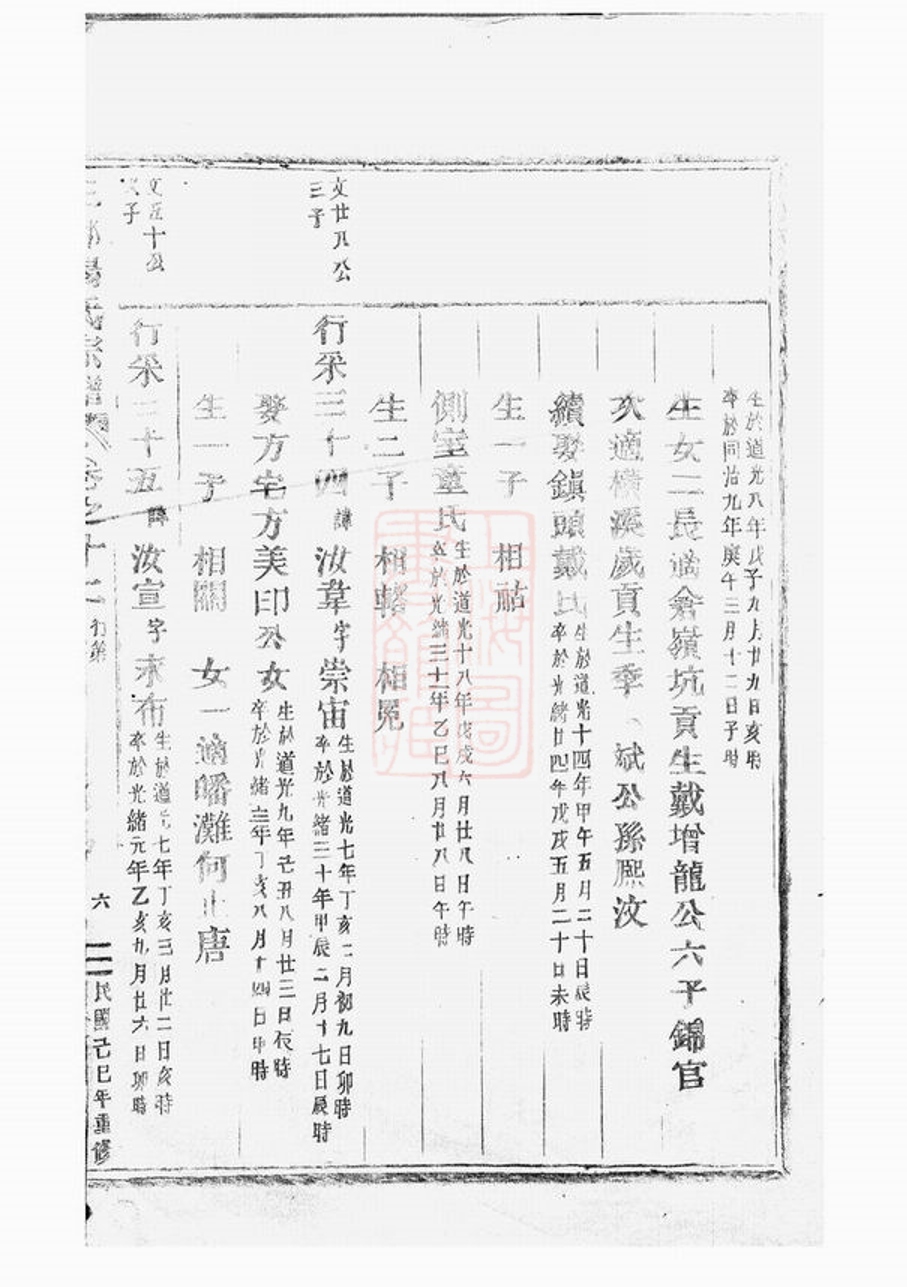 生於道光八年戊子九月廿九日亥時
卒於同治九年庚午三月十二日子時
生女二長適倉嶺坑貢生戴增龍公六子錦官
次適橫溪歲貢生季斌公孫熙汶
續娶鎮頭戴氏
生於道光十四年甲午五月二十日辰時
卒於光緒廿四年戊戌五月二十日未時
生一子 相祜
側室童氏
生於道光十八年戊戌六月廿八日午時
卒於光緒三十一年乙巳八月廿八日午時
生二子 相轄 相冕
文廿八公
三子
行采三十四 諱汝葦字崇宙
生於道光七年丁亥二月初九日卯時
卒於光緒三十年甲辰二月十七日辰時
娶方宅方美印公女
生於道光九年己丑八月廿三日辰時
卒於光緒三年丁亥八月十四日申時
生一子 相關 女一適皤灘何止唐
文五十公
子
行采三十五 諱汝宣字永布
生於道光七年丁亥三月廿二日亥時
卒於光緒元年乙亥九月廿六日卯時
氏宗譜 卷之十二 行第 六 民國己巳年重修